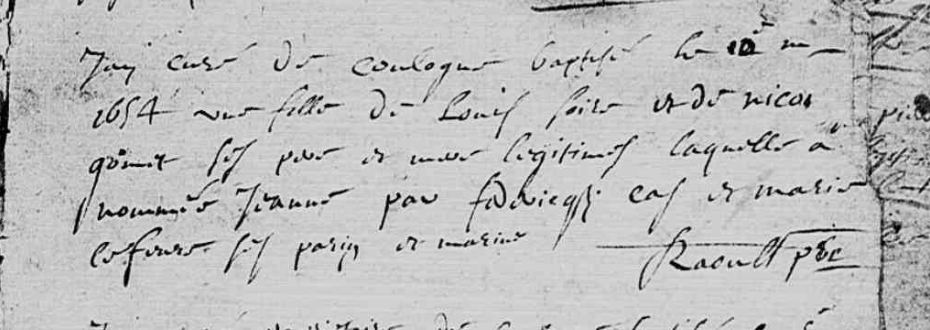 Jay curé de coulogne baptisé le 12e m
1654 une fille de Louis soire et de nicol
ses pere et mere legitimes laquelle a
nommée Jeanne par cas et marie
lefevre ses parin et marine
Raoult pbr